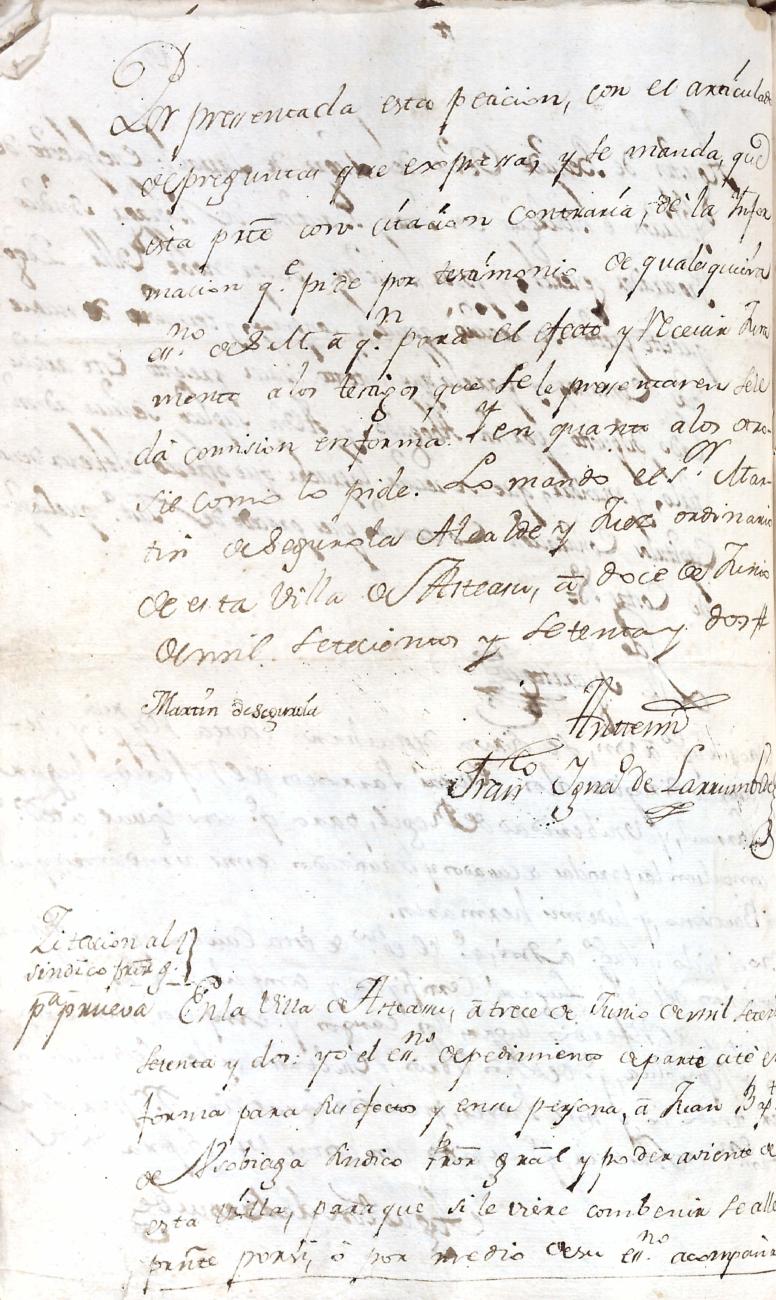 Por pressentada esta peticion, con el articulado
de preguntas que expressa, y se manda, que
esta prte con citacion contraria, dè la Infor
macion q.e pide por testimonio de qualesquiera
ess.no de S. M. â q.n para el efecto y recevir Jura
mento alos testigos que se le presentaren sele
dá comision enforma. Y en quanto alos otro-
sies como lo pide. Lo mando el S.or Mar-
tin de Segurola Alcalde y Juez ordinario
de esta Villa de Asteasu, â doce de Junio
de mil setecientos y setenta y dos
Martin de Segurola
Antemi
Fran.co Igna.o de Larrumbide
Zitacion al
sindico prôr g.l
p.a prueva
En la Villa de Asteasu, â trece de Junio de mil seteci
setenta y dos: yo el ess.no de pedimiento de parte citè en
forma para sus efectos y ensu persona, â Juan Bap.t
de Alcobiaga sindico prôr grâl y poder aviente de
esta villa, paraque si le viere combenir se alle
prnte porsi, ô por medio desu ess.no acompañ